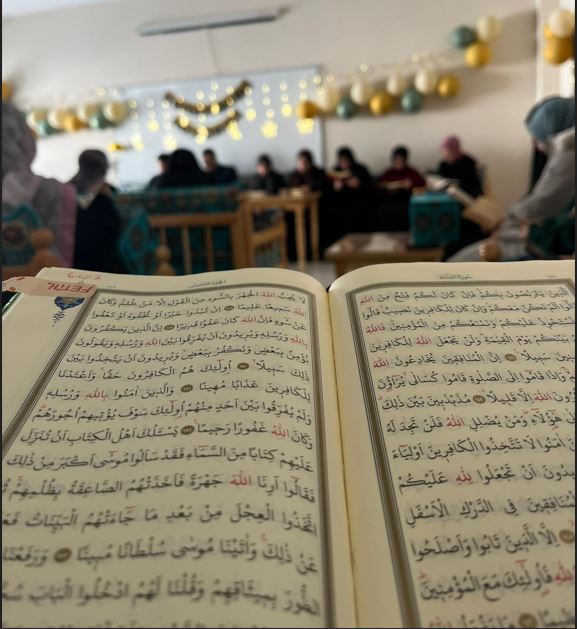 سُورَةُ النِّسَاءِ
يَتَرَبَّصُونَ بِكُمْ فَاِنْ كَانَ لَكُمْ فَتْحٌ مِنَ اللّٰهِ
اَلَمْ نَكُنْ مَعَكُمْ وَاِنْ كَانَ لِلْكَافِرِينَ نَصِيبٌ قَالُوا
عَلَيْكُمْ وَنَمْنَعْكُمْ مِنَ الْمُؤْمِنِينَ فَاللّٰهُ
بَيْنَكُمْ يَوْمَ الْقِيٰمَةِ وَلَنْ يَجْعَلَ اللّٰهُ لِلْكَافِرِينَ
سَبِيلًا اِنَّ الْمُنَافِقِينَ يُخَادِعُونَ اللّٰهَ
وَاِذَا قَامُوا اِلَى الصَّلٰوةِ قَامُوا كُسَالٰى يُرَاؤُنَ
اللّٰهَ اِلَّا قَلِيلًا مُذَبْذَبِينَ بَيْنَ ذٰلِكَ
هٰٓؤُلَاءِ وَمَنْ يُضْلِلِ اللّٰهُ فَلَنْ تَجِدَ لَهُ
اٰمَنُوا لَا تَتَّخِذُوا الْكَافِرِينَ اَوْلِيَاءَ
اَنْ تَجْعَلُوا لِلّٰهِ عَلَيْكُمْ
الْمُنَافِقِينَ فِى الدَّرْكِ الْاَسْفَلِ
اِلَّا الَّذِينَ تَابُوا وَاَصْلَحُوا
فَاُولٰٓئِكَ مَعَ الْمُؤْمِنِينَ
FETİH
لَا يُحِبُّ اللّٰهُ الْجَهْرَ بِالسُّوءِ مِنَ الْقَوْلِ اِلَّا مَنْ ظُلِمَ وَكَانَ
اللّٰهُ سَمِيعًا عَلِيمًا اِنْ تُبْدُوا خَيْرًا اَوْ تُخْفُوهُ اَوْ تَعْفُوا
عَنْ سُوءٍ فَاِنَّ اللّٰهَ كَانَ عَفُوًّا قَدِيرًا اِنَّ الَّذِينَ يَكْفُرُونَ
بِاللّٰهِ وَرُسُلِهِ وَيُرِيدُونَ اَنْ يُفَرِّقُوا بَيْنَ اللّٰهِ وَرُسُلِهِ وَيَقُولُونَ
نُؤْمِنُ بِبَعْضٍ وَنَكْفُرُ بِبَعْضٍ وَيُرِيدُونَ اَنْ يَتَّخِذُوا بَيْنَ
ذٰلِكَ سَبِيلًا اُولٰٓئِكَ هُمُ الْكَافِرُونَ حَقًّا وَاَعْتَدْنَا
لِلْكَافِرِينَ عَذَابًا مُهِينًا وَالَّذِينَ اٰمَنُوا بِاللّٰهِ وَرُسُلِهِ
وَلَمْ يُفَرِّقُوا بَيْنَ اَحَدٍ مِنْهُمْ اُولٰٓئِكَ سَوْفَ يُؤْتِيهِمْ اُجُورَهُمْ
وَكَانَ اللّٰهُ غَفُورًا رَحِيمًا يَسْـَٔلُكَ اَهْلُ الْكِتَابِ اَنْ تُنَزِّلَ
عَلَيْهِمْ كِتَابًا مِنَ السَّمَاءِ فَقَدْ سَاَلُوا مُوسٰٓى اَكْبَرَ مِنْ ذٰلِكَ
فَقَالُوا اَرِنَا اللّٰهَ جَهْرَةً فَاَخَذَتْهُمُ الصَّاعِقَةُ بِظُلْمِهِمْ
اتَّخَذُوا الْعِجْلَ مِنْ بَعْدِ مَا جَاءَتْهُمُ الْبَيِّنَاتُ
عَنْ ذٰلِكَ وَاٰتَيْنَا مُوسٰى سُلْطَانًا مُبِينًا وَرَفَعْنَا
الطُّورَ بِمِيثَاقِهِمْ وَقُلْنَا لَهُمُ ادْخُلُوا الْبَابَ